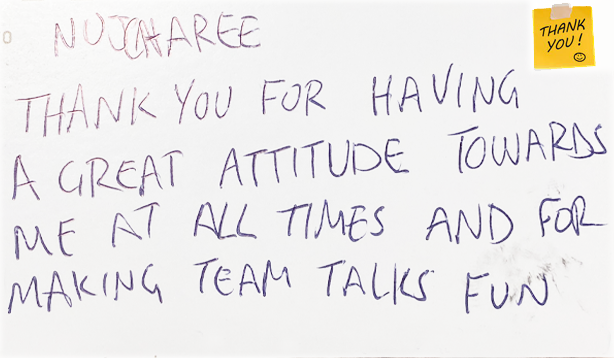 NUJCHAREE
THANK YOU!
THANK YOU FOR HAVING
A GREAT ATTITUDE TOWARDS
ME AT ALL TIMES AND FOR
MAKING TEAM TALKS FUN